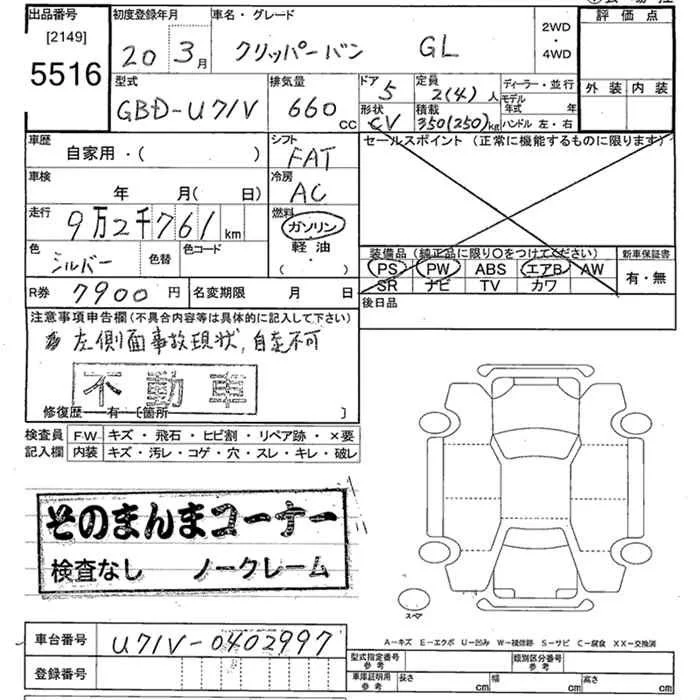 出品番号 初度登録年月 車名・グレード 2WD・4WD 評価点
[2149]
5516 20 3月 クリッパーバン GL
型式 排気量 ドア 定員 ディーラー・並行 外装 内装
GBD-U71V 660 CC 5 2(4)人 モデル年式 年
形状 積載 ハンドル 左・右
CV 350(250)kg
車歴 シフト セールスポイント (正常に機能するものに限ります)
自家用・( ) FAT
車検 冷房
年 月(日) AC
走行 燃料
9万2千761km ガソリン
軽油
・( )
色 色替 色コード
シルバー
装備品 (純正品に限り○をつけてください) 新車保証書
PS PW ABS エアB AW 有・無
SR ナビ TV カワ
R券 7900円 名変期限 月 日 後日品
注意事項申告欄(不具合内容等は具体的に記入して下さい)
左側面事故現状,自走不可
不動車
修復歴 有 [箇所 ]
検査員 FW キズ・飛石・ヒビ割・リペア跡・×要
記入欄 内装 キズ・汚レ・コゲ・穴・スレ・キレ・破レ
そのまんまコーナー
検査なし ノークレーム
スペア
A-キズ E-エクボ U-凹み W-補修跡 S-サビ C-腐食 XX-交換済
車台番号 U71V-0402997
登録番号
型式指定番号 参考 類別区分番号 参考
車庫証明用 参考 長さ cm 幅 cm 高さ cm